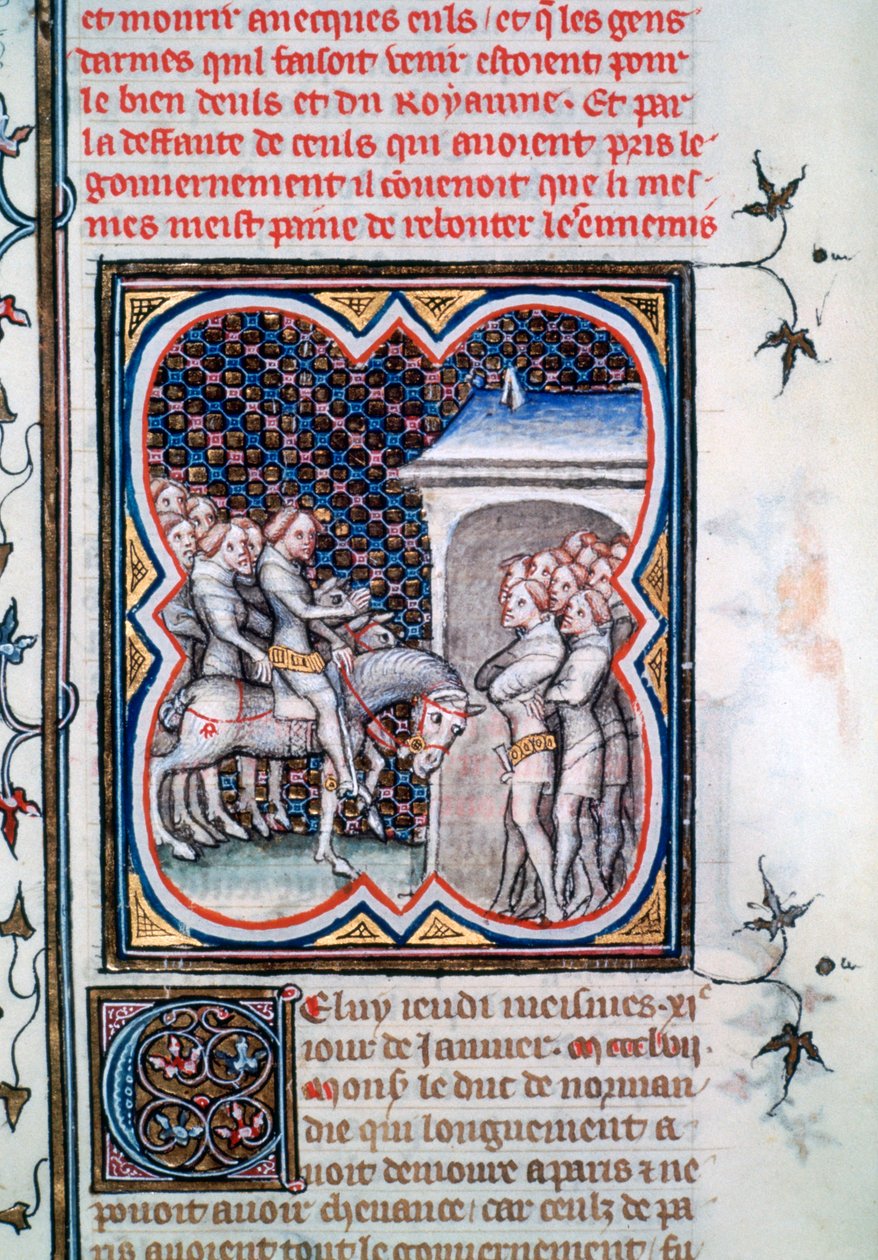 et mourir auecques euls / et q̄ les gens
darmes quil faisoit venir estoient pour
le bien deuls et du Royaume. Et par
la deffaute de ceuls qui auoient pris le
gouuernement il cōuenoit que li mes
mes meist paine de rebouter les ennemis
Celuy ieudi meismes. xi^e
iour de Januier. m ccc lvij.
Mons̄ le duc de norman
die qui longuement a
uoit demoure a paris ⁊ ne
pouoit auoir cheuance / car ceulz de pa
ris auoient tout le gouuernement / fu